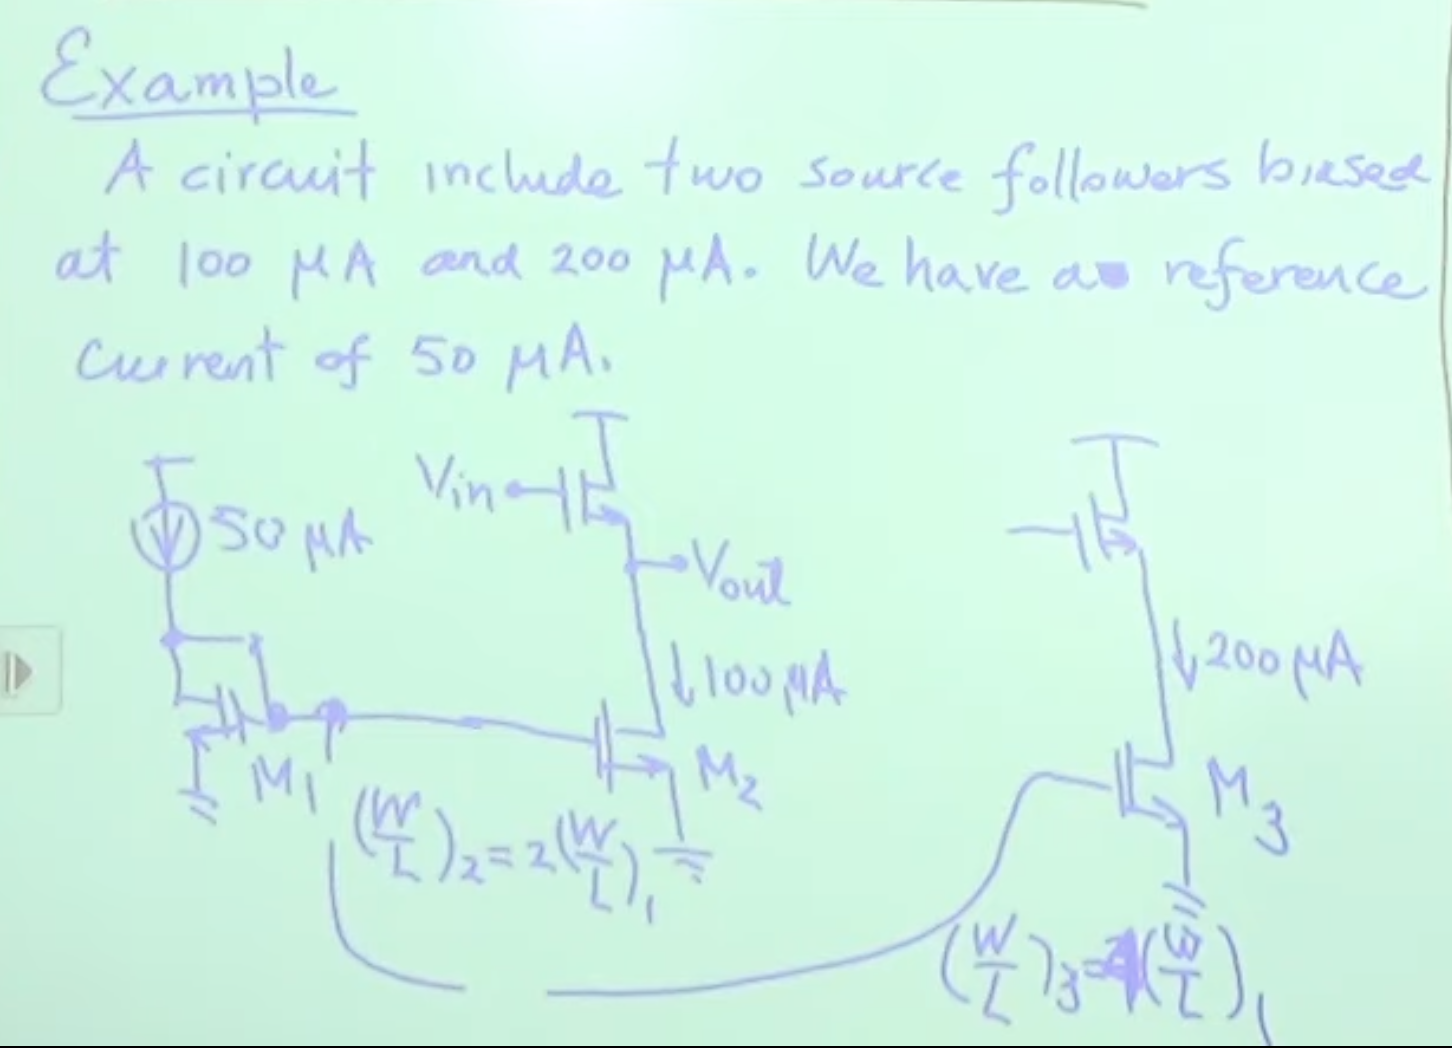 Example
A circuit include two source followers biased
at 100 μA and 200 μA. We have a reference
Current of 50 μA.
Vin
50 μA
Vout
↓100 μA
↓200 μA
M1
M2
M3
(W/L)2=2(W/L)1
(W/L)3=4(W/L)1